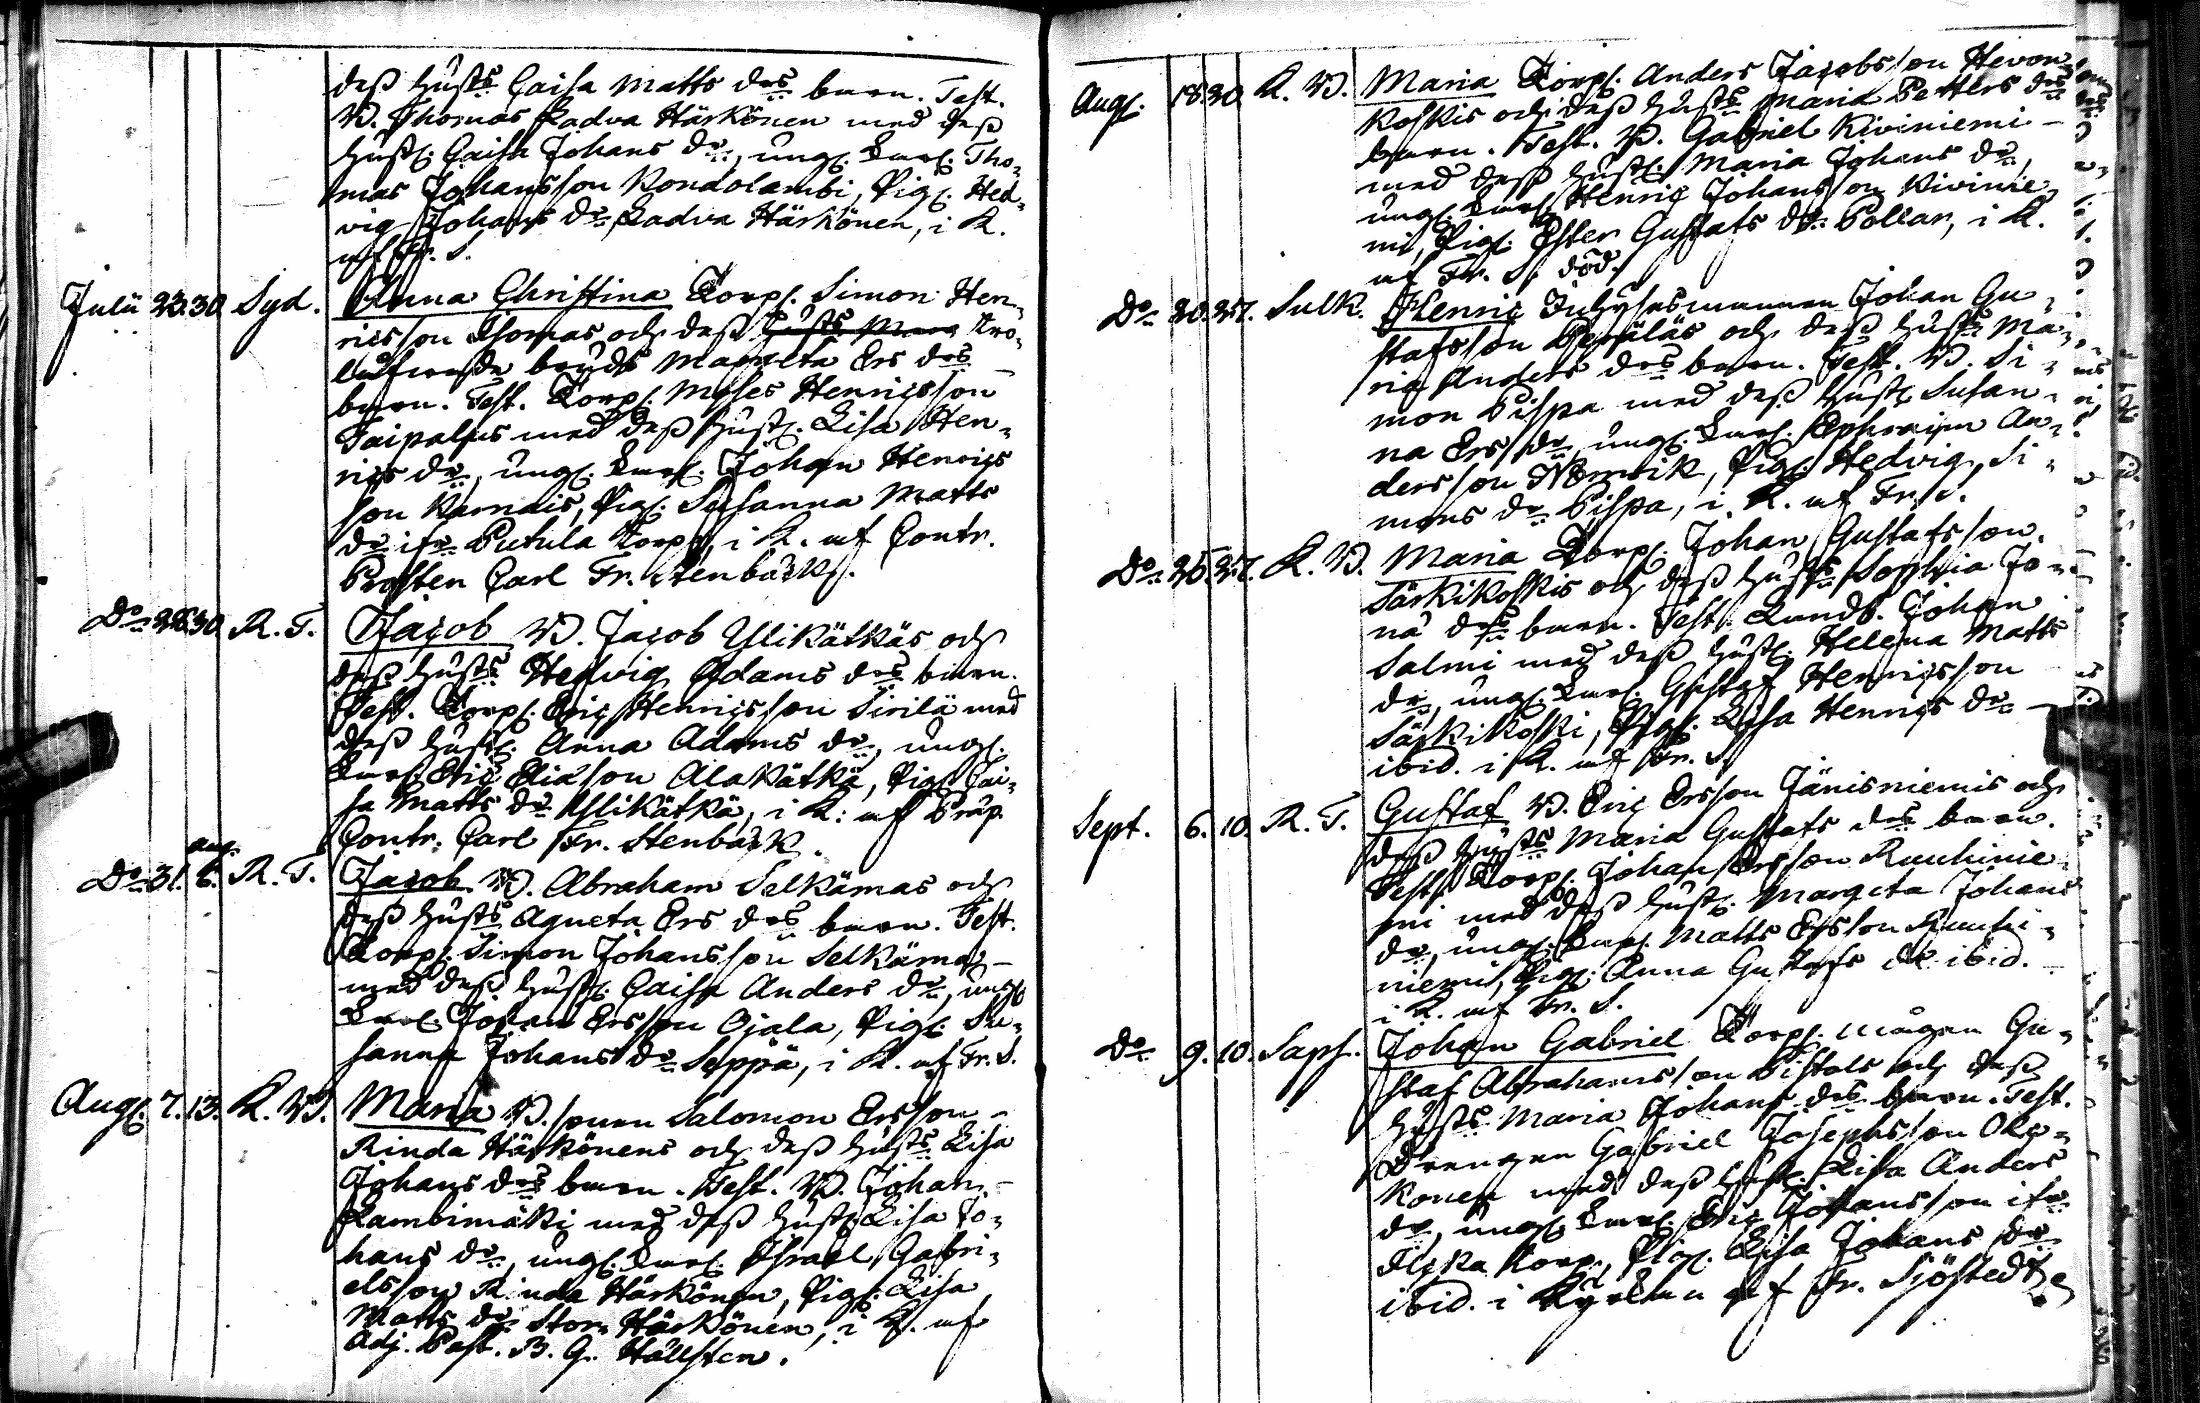 deß hust:s Caisa Matts d:rs barn. Test.
B. Thomas Ladva Härkönen med deß
hust. Caisa Johans d:r, ung. Karl. Tho-
mas Johansson Kondolambi, Pig. Hed-
vig Johans d:r Ladva Härkönen, i K.
af Fr. S.
Julii 23. 30. Syd. Anna Christina Torp. Simon Hen-
ricsson Thomas och deß hust:s Marg Tro-
lofwade brud:s Margeta Ers d:rs
barn. Test. Torp. Moses Henricsson
Taipalus med deß hust. Lisa Hen-
rics d:r, ung. Karl. Johan Henrics
son Karndis, Pig. Susanna Matts
d:r ifr. Putula Torp, i K. af Contr.
Prosten Carl Fr. Stenbäck.
D:o 28. 30. R. T. Jacob B. Jacob Ylikätkäs och
deß hust:s Hedvig Adams d:rs barn.
Test. Torp. Eric Henricsson Sirilä med
deß hust. Anna Adams d:r, ung.
Karl. Eric Eliasson Alakätkä, Pig. Cai-
sa Matts d:r Ylikätkä, i K. af Präp.
Contr. Carl Fr. Stenbäck.
aug.
D:o 31. 6. R. T. Jacob B. Abraham Selkämas och
deß hust:s Agneta Ers d:rs barn. Test.
Torp. Simon Johansson Selkäma
med deß hust. Caisa Anders d:r, ung.
Karl. Johan Ersson Ojala, Pig. Su-
sanna Johans d:r Seppä, i K. af Fr. S.
Aug. 7. 13. K. B. Maria B. sonen Salomon Ersson
Rinda Härkönens och deß hust:s Lisa
Johans d:rs barn. Test. B. Johan
Lambimäki med deß hust. Lisa Jo-
hans d:r, ung. Karl. Israel Gabri-
elsson Rinda Härkönen, Pig. Lisa
Matts d:r Stor Härkönen, i K. af
Adj. Past. B. G. Hällsten.
Aug. 18. 20. K. B. Maria Torp. Anders Jacobsson Hevon-
koskis och deß hust:s Maria Petters d:rs
barn. Test. B. Gabriel Kiviniemi
med deß hust. Maria Johans d:r,
ung. Karl. Henric Johansson Kivinie-
mi, Pig. Ester Gustafs d:r Pollar, i K.
af Fr. S. död.
D:o 20. 27. Sulk. Henric Inhysesmannen Johan Gu-
stafsson Peräläs och deß hust:s Ma-
ria Anders d:rs barn. Test. B. Si-
mon Pispa med deß hust. Susan-
na Ers d:r, ung. Karl. Ephraim An-
dersson Norrvik, Pig. Hedvig Si-
mons d:r Pispa, i K. af Fr. S.
D:o 25. 27. K. B. Maria Torp. Johan Gustafsson
Särkikoskis och deß hust:s Sophia Jo-
na d:rs barn. Test. Landb. Johan
Salmi med deß hust. Helena Matts
d:r, ung. Karl. Gustaf Henricsson
Särkikoski, Pig. Lisa Henrics d:r
ibid. i K. af Fr. S.
Sept. 6. 10. R. T. Gustaf B. Eric Ersson Jänisniemis och
deß hust:s Maria Gustafs d:rs barn.
Test. Torp. Johan Ersson Ruuhinie-
mi med deß hust. Margeta Johans
d:r, ung. Karl. Matts Ersson Ruuhi-
niemi, Pig. Anna Gustafs d:r ibid.
i K. af Fr. S.
D:o 9. 10. Saps. Johan Gabriel Torp. mågen Gu-
staf Abrahamsson Pistols och deß
hust:s Maria Johans d:rs barn. Test.
Drengen Gabriel Josephsson Oko-
konen med deß hust. Lisa Anders
d:r, ung. Karl. Eric Johansson ifr.
Torp, Pig. Lisa Johans d:r
ibid. i Kyrkan af Fr. Sjöstedt.